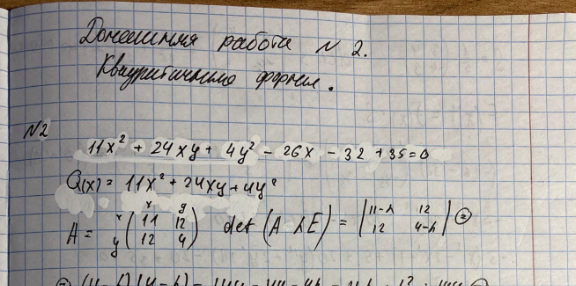 Домашняя работа № 2.
Квадратичные формы.
№2
11x² + 24xy + 4y² - 26x - 32 + 35 = 0
Q(x) = 11x² + 24xy + 4y²
x y
A = x y ( 11 12 12 4 ) det (A λE) = | 11-λ 12 12 4-λ | =